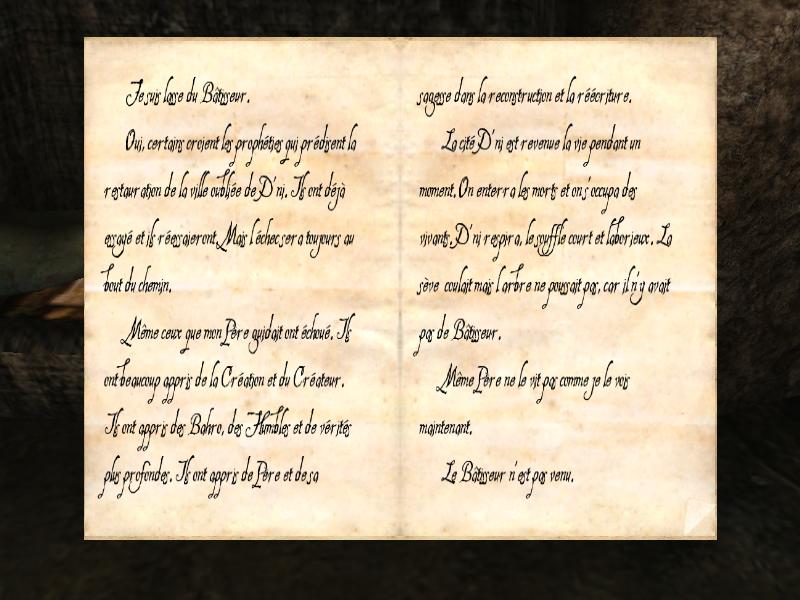 Je suis lasse du Bâtisseur.
Oui, certains croient les prophéties qui prédisent la
restauration de la ville oubliée de D'ni. Ils ont déjà
essayé et ils réessaieront. Mais l'échec sera toujours au
bout du chemin.
Même ceux que mon Père guidait ont échoué. Ils
ont beaucoup appris de la Création et du Créateur.
Ils ont appris des Bahro, des Humbles et de vérités
plus profondes. Ils ont appris de Père et de sa
sagesse dans la reconstruction et la réécriture.
La cité D'ni est revenue la vie pendant un
moment. On enterra les morts et on s'occupa des
vivants. D'ni respira, le souffle court et laborieux. La
sève coulait mais l'arbre ne poussait pas, car il n'y avait
pas de Bâtisseur.
Même Père ne le vit pas comme je le vois
maintenant.
Le Bâtisseur n'est pas venu.